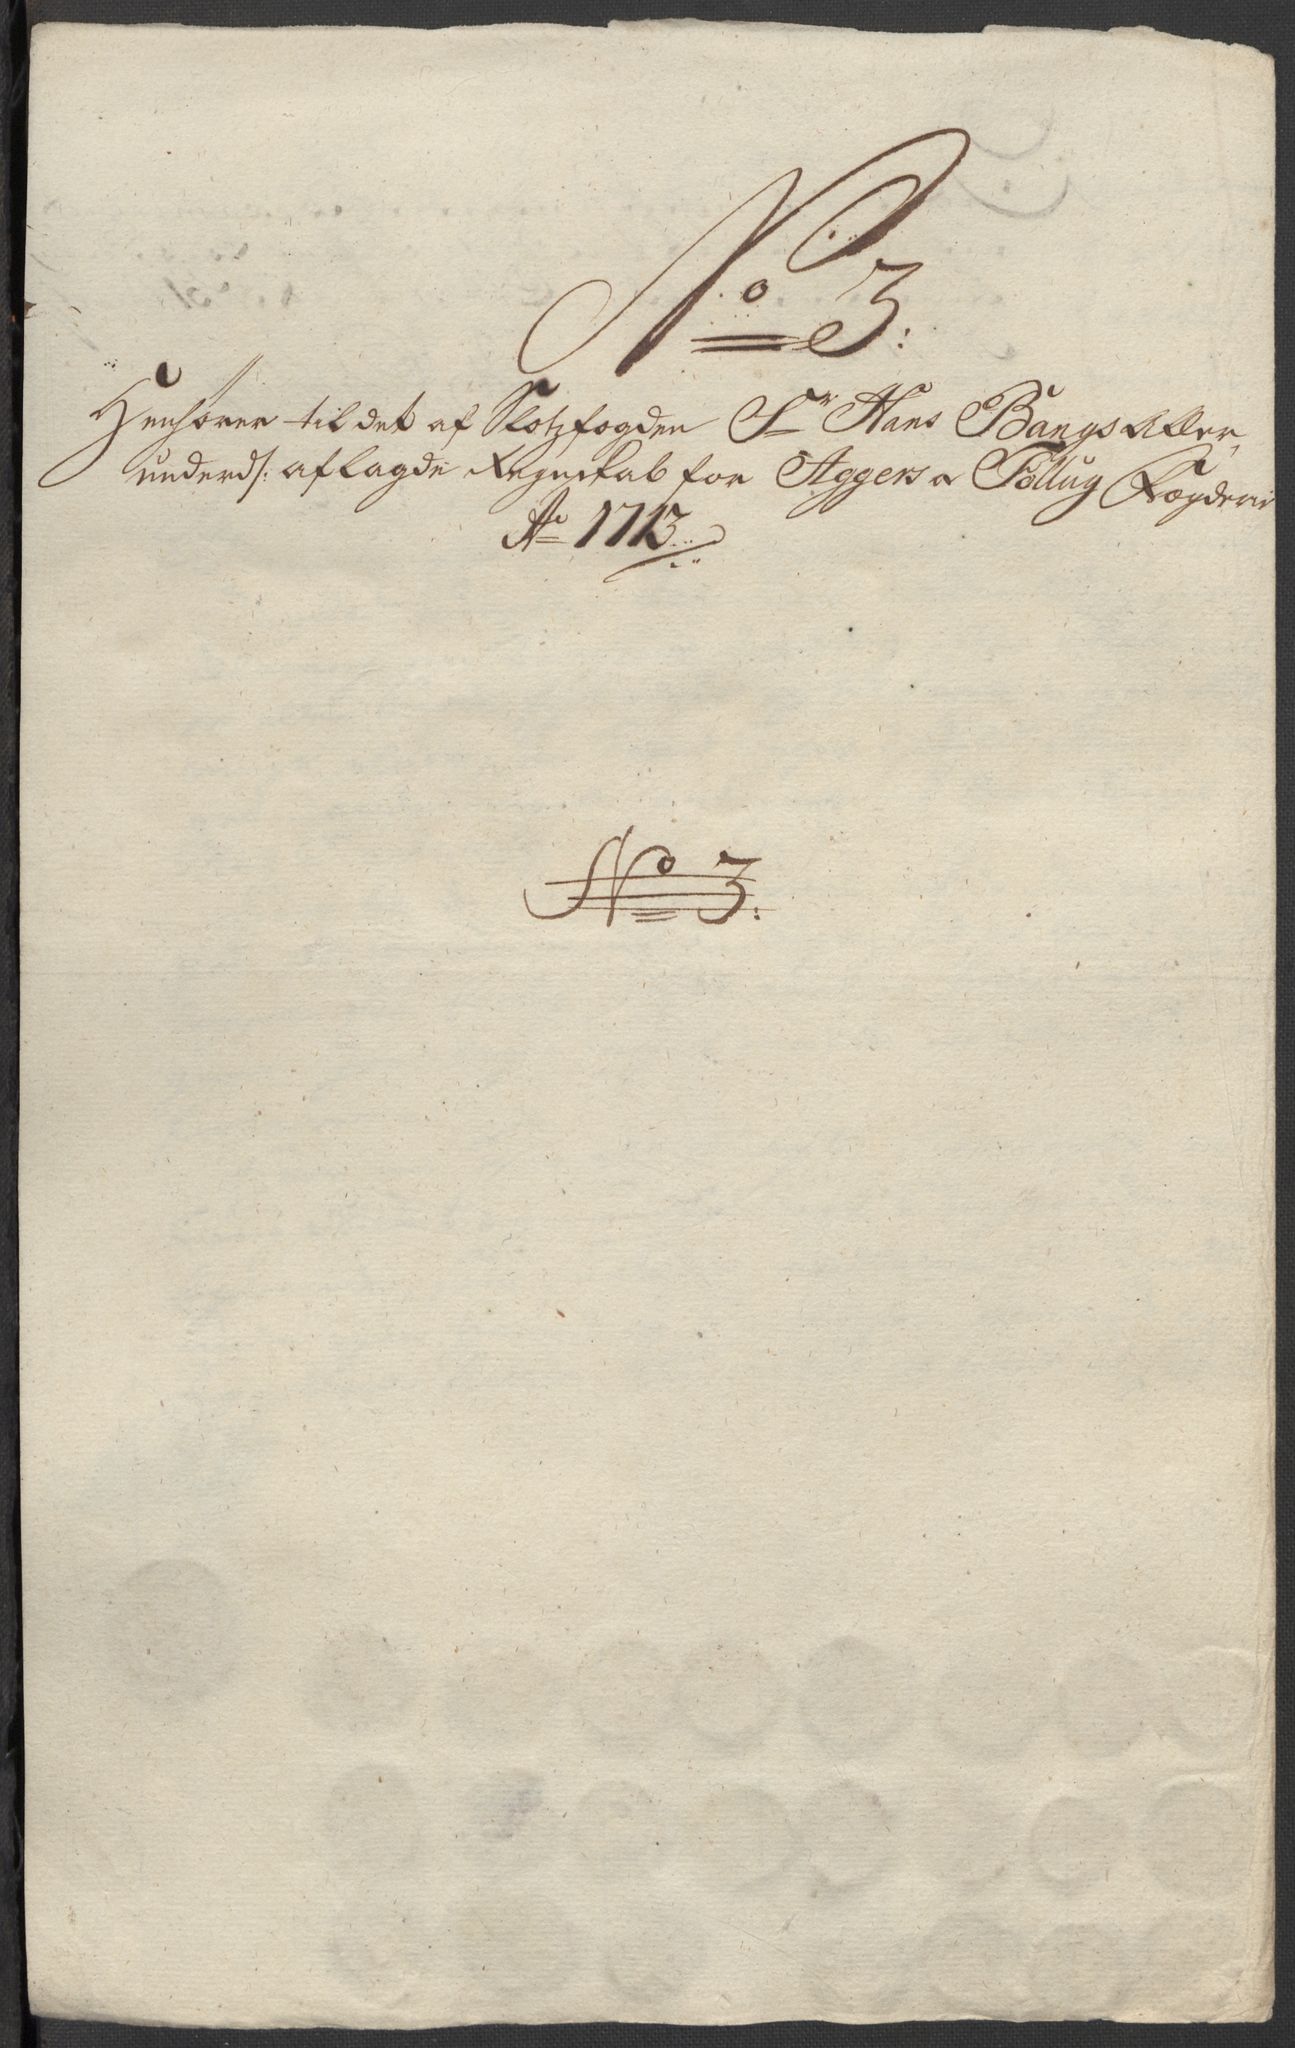 No 3:
Henhører til det af Slotzfogden Sr Hans Bangs Aller
underd/: aflagde Regnskab for Aggers a Follug Fogderie
Ao 1713
No 3: